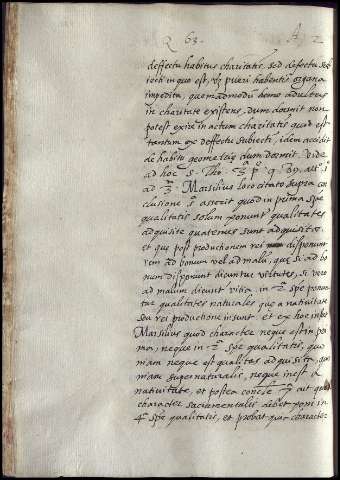 Q 63. A 2
deffectu habitus charitatis sed defectu sub
iecti in quo est, vt pueri habentis organa
impedita, quemadmodũ homo adultus
in charitate existens, dum dormit non
potest exire in actum charitatis quod est
tantum ex deffectu subiecti, idem accidit
de habitu geometriæ dum dormit. Vide
ad hoc S. Tho. 3ª pª q. 69. ar. 6
ad 3. Marsilius loco citato supra con
clusione asserit quod in prima spe
qualitatis solum ponunt qualitates
adquisite quatenus sunt adquisite.
et que post productionem rei disponunt
rem ad bonum vel ad malũ, que si ad bo
num disponunt dicuntur virtutes, si vero
ad malum dicunt vitia. in 2ª spe ponun
tur qualitates naturales que a nativitate
seu rei productione insunt. et ex hoc infert
Marsilius quod character neque est in pri
ma, neque in 2ª spe qualitatis, quo
niam neque est qualitas adquisita, quo
niam supernaturalis, neque inest a
nativitate, et postea ait quod
character sacramentalis debet poni in
4ª spe qualitatis, et probat quia character